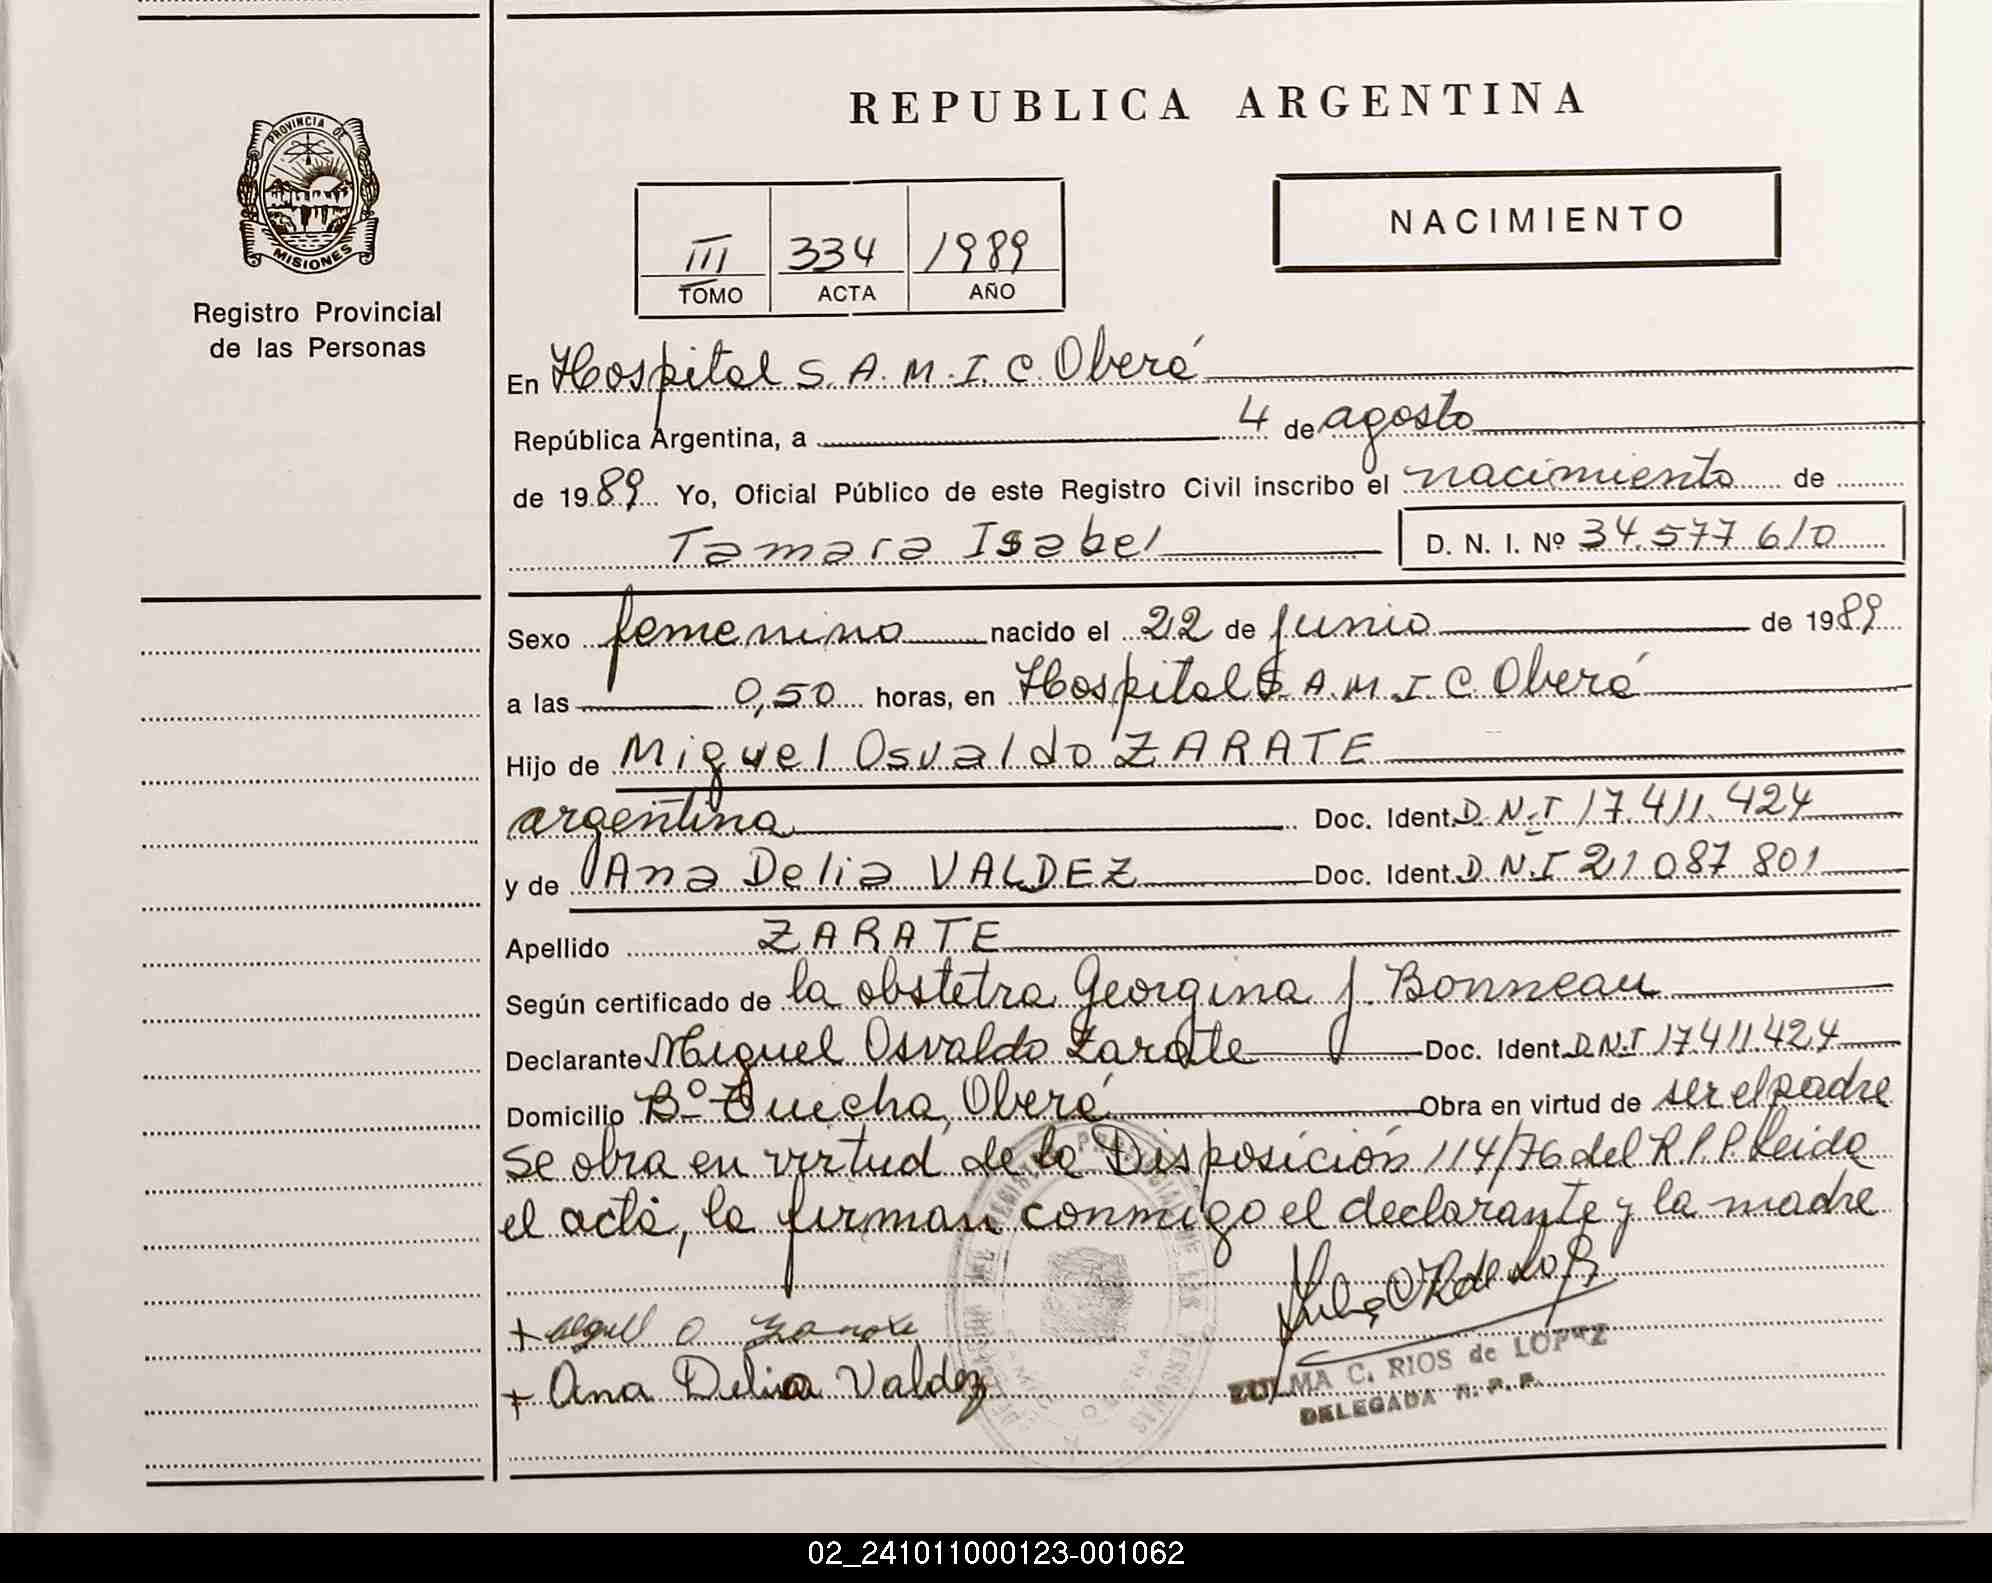 REPUBLICA ARGENTINA
PROVINCIA DE
MISIONES
Registro Provincial
de las Personas
NACIMIENTO
III 334 1989
TOMO ACTA AÑO
En Hospital S.A.M.I.C. Oberá
República Argentina, a 4 de agosto
de 1989 Yo, Oficial Público de este Registro Civil inscribo el nacimiento de
Tamara Isabel D. N. I. Nº 34.577.610
Sexo femenino nacido el 22 de junio de 1989
a las 0,50 horas, en Hospital S.A.M.I.C. Oberá
Hijo de Miguel Osvaldo ZARATE
argentina Doc. Ident. D.N.I 17.411.424
y de Ana Delia VALDEZ Doc. Ident. D.N.I 21.087.801
Apellido ZARATE
Según certificado de la obstetra Georgina J. Bonneau
Declarante Miguel Osvaldo Zarate Doc. Ident. D.N.I 17.411.424
Domicilio Bº Oberá Obra en virtud de ser el padre
Se obra en virtud de la Disposición 114/76 del R.P.P. Leida
el acta, la firman conmigo el declarante y la madre
o Zarate
+ Ana Delia Valdez
ZULMA C. RIOS de LOPEZ
DELEGADA R. P. P.
02_241011000123-001062